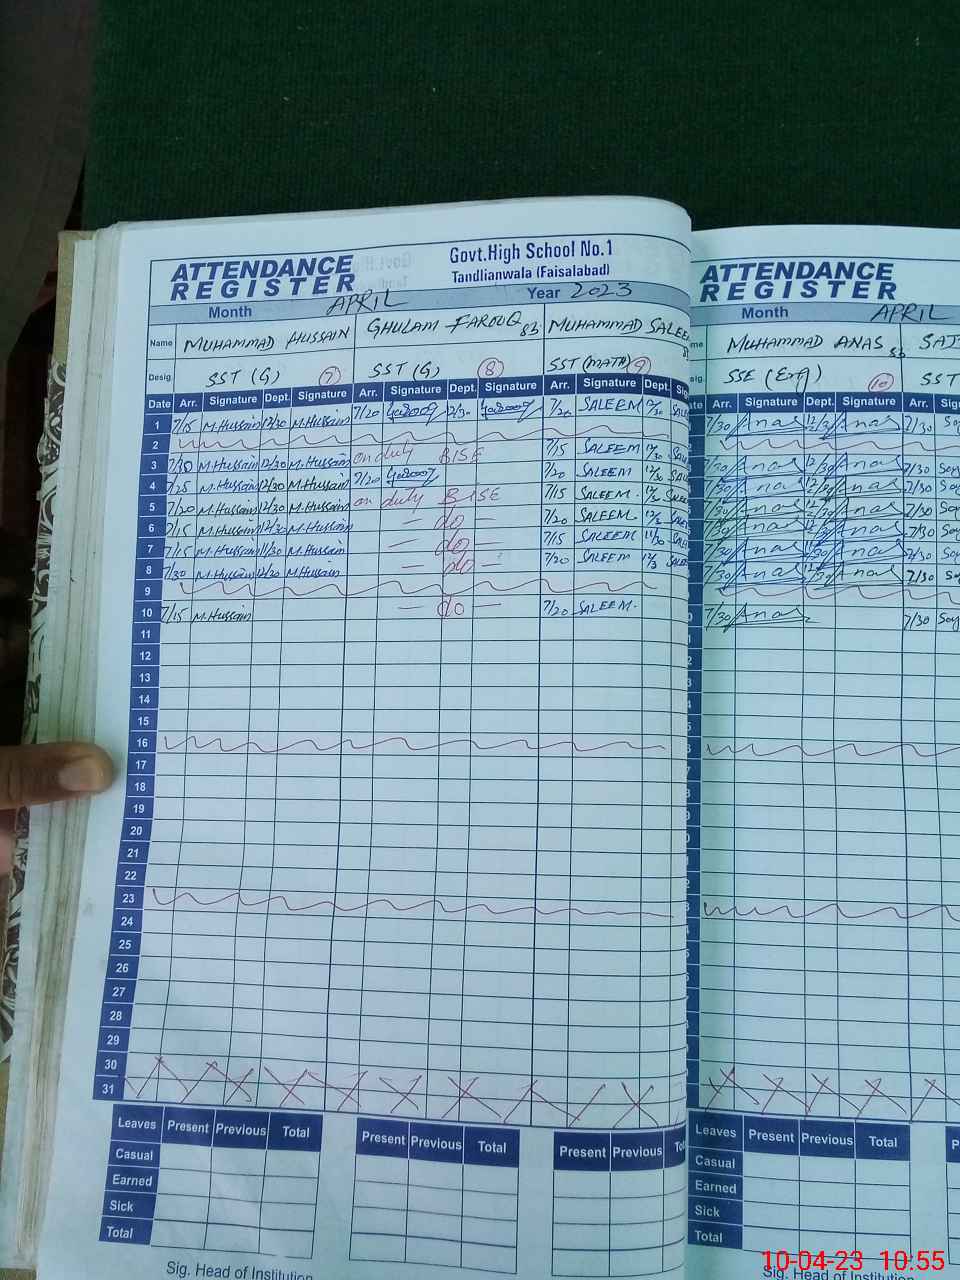 ATTENDANCE
REGISTER
Govt.High School No.1
Tandlianwala (Faisalabad)
Month APRIL Year 2023
Name MUHAMMAD HUSSAIN GHULAM FAROUQ 83 MUHAMMAD SALEE
Desig. SST (G) 7 SST (G) 8 SST (MATH) 9
Date Arr. Signature Dept. Signature Arr. Signature Dept. Signature Arr. Signature Dept.
1 7/15 M.Hussain 12/30 M.Hussain 7/20 2/30 7/20 SALEEM 12/30
2
3 7/30 M.Hussain 12/30 M.Hussain on duty BISE 7/15 SALEEM 12/30
4 7/25 M.Hussain 12/30 M.Hussain 7/20 7/20 SALEEM 12/30
5 7/20 M.Hussain 12/30 M.Hussain on duty BISE 7/15 SALEEM.
6 7/15 M.Hussain 12/30 M.Hussain — do — 7/20 SALEEM.
7 7/15 M.Hussain 11/30 M.Hussain — do — 7/15 SALEEM 11/30
8 7/30 M.Hussain 12/30 M.Hussain — do — 7/20 SALEEM
9
10 7/15 M.Hussain — do — 7/20 SALEEM.
11
12
13
14
15
16
17
18
19
20
21
22
23
24
25
26
27
28
29
30
31
Leaves Present Previous Total Present Previous Total Present Previous
Casual
Earned
Sick
Total
Sig. Head of Institution
ATTENDANCE
REGISTER
Month APRIL
MUHAMMAD ANAS
SSE (Eng) 10 SST
Arr. Signature Dept. Signature Arr.
7/30 Anas Anas 7/30
7/30 Anas Anas 7/30
7/30 Anas Anas 7/30
7/30 Anas Anas 7/30
Anas Anas 7/30
7/30 Anas Anas 7/30
7/30 Anas Anas 7/30
7/30 Anas 7/30
Leaves Present Previous Total
Casual
Earned
Sick
Total
Sig. Head of Institution
10-04-23 10:55